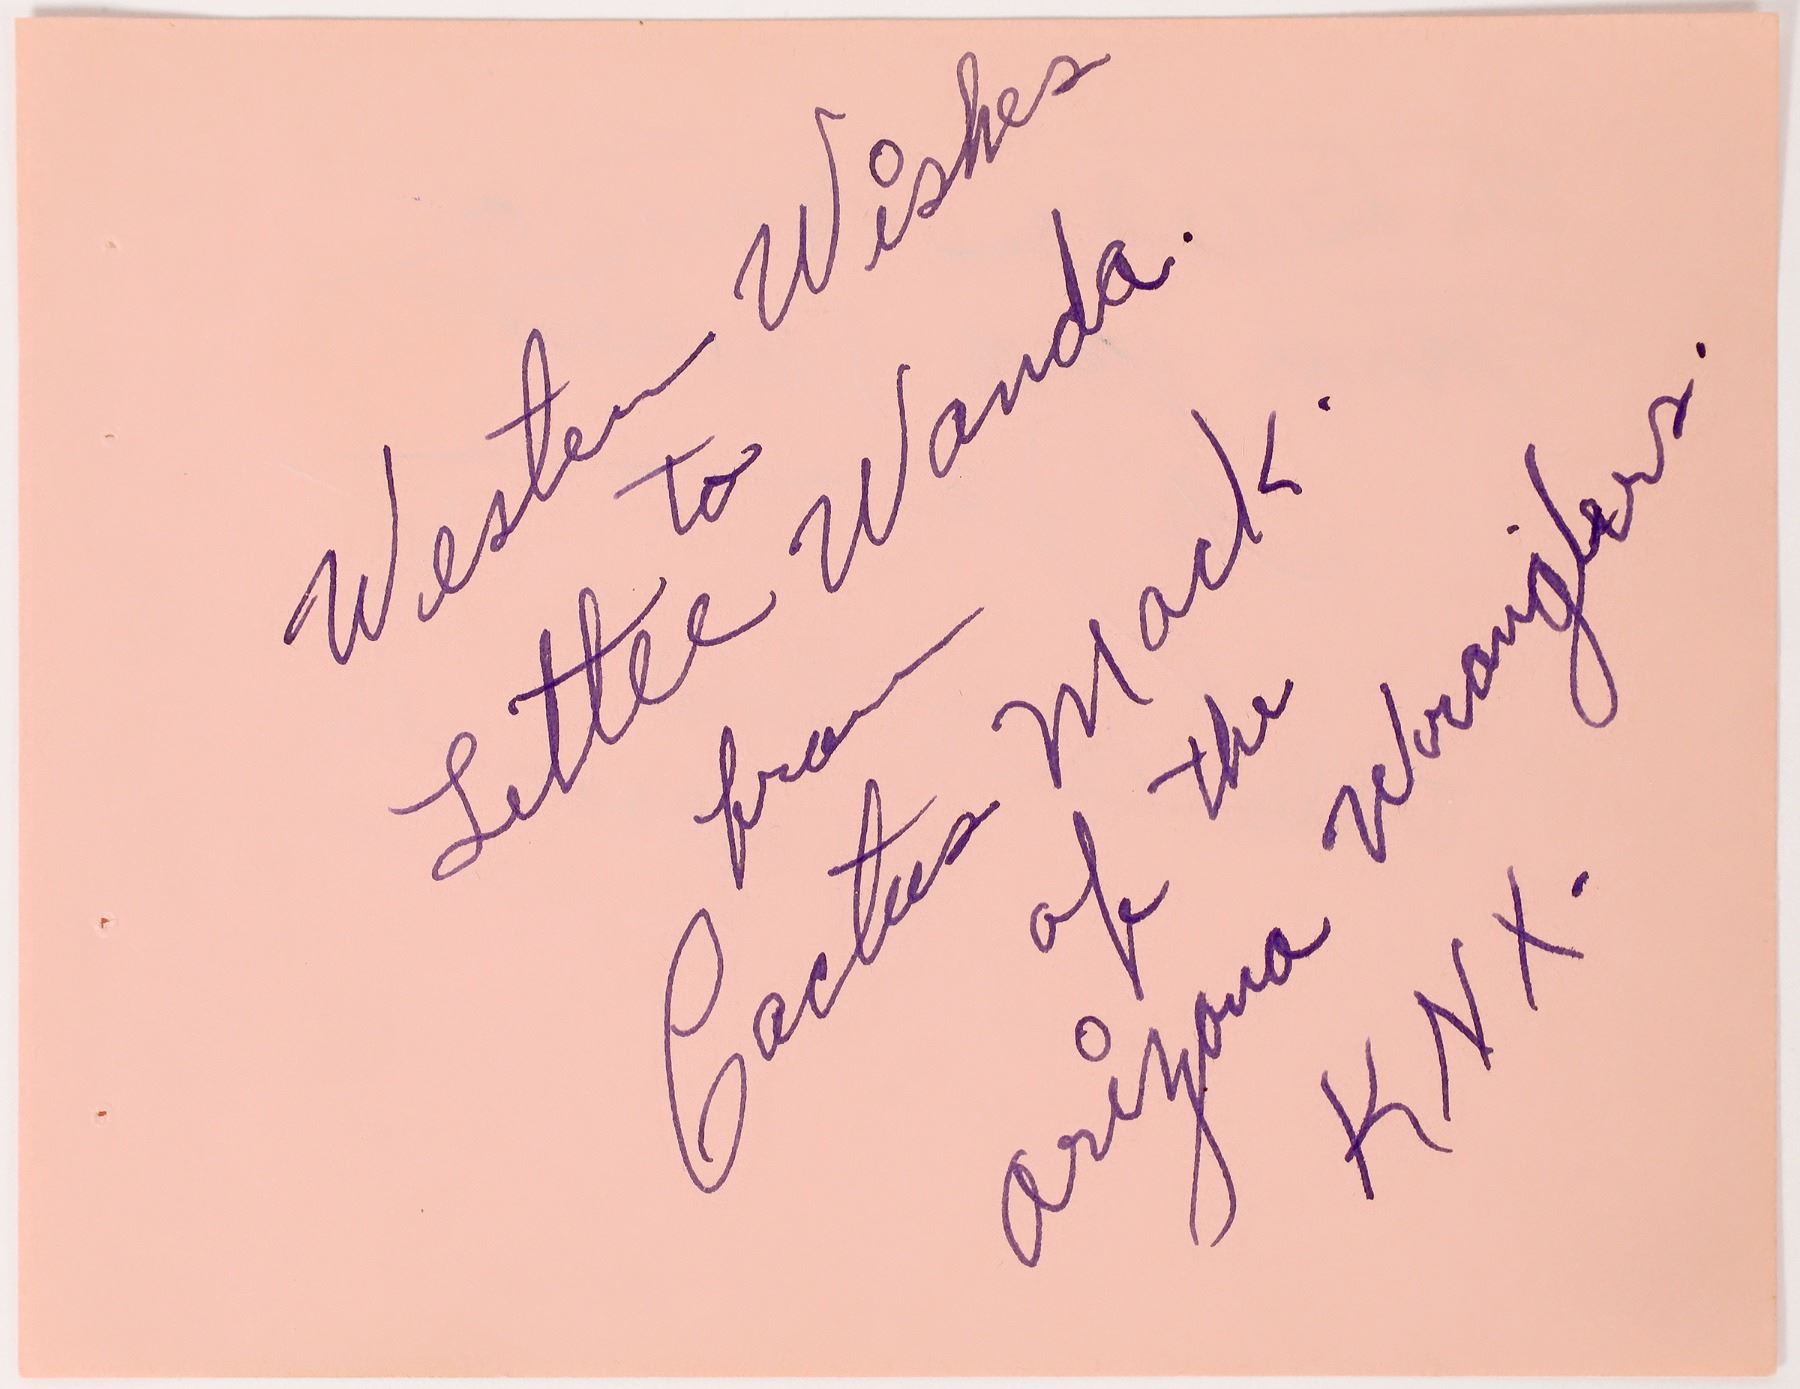 Western Wishes
to
Little Wanda.
from
Cactus Mack.
of the
Arizona Wranglers.
KNX.